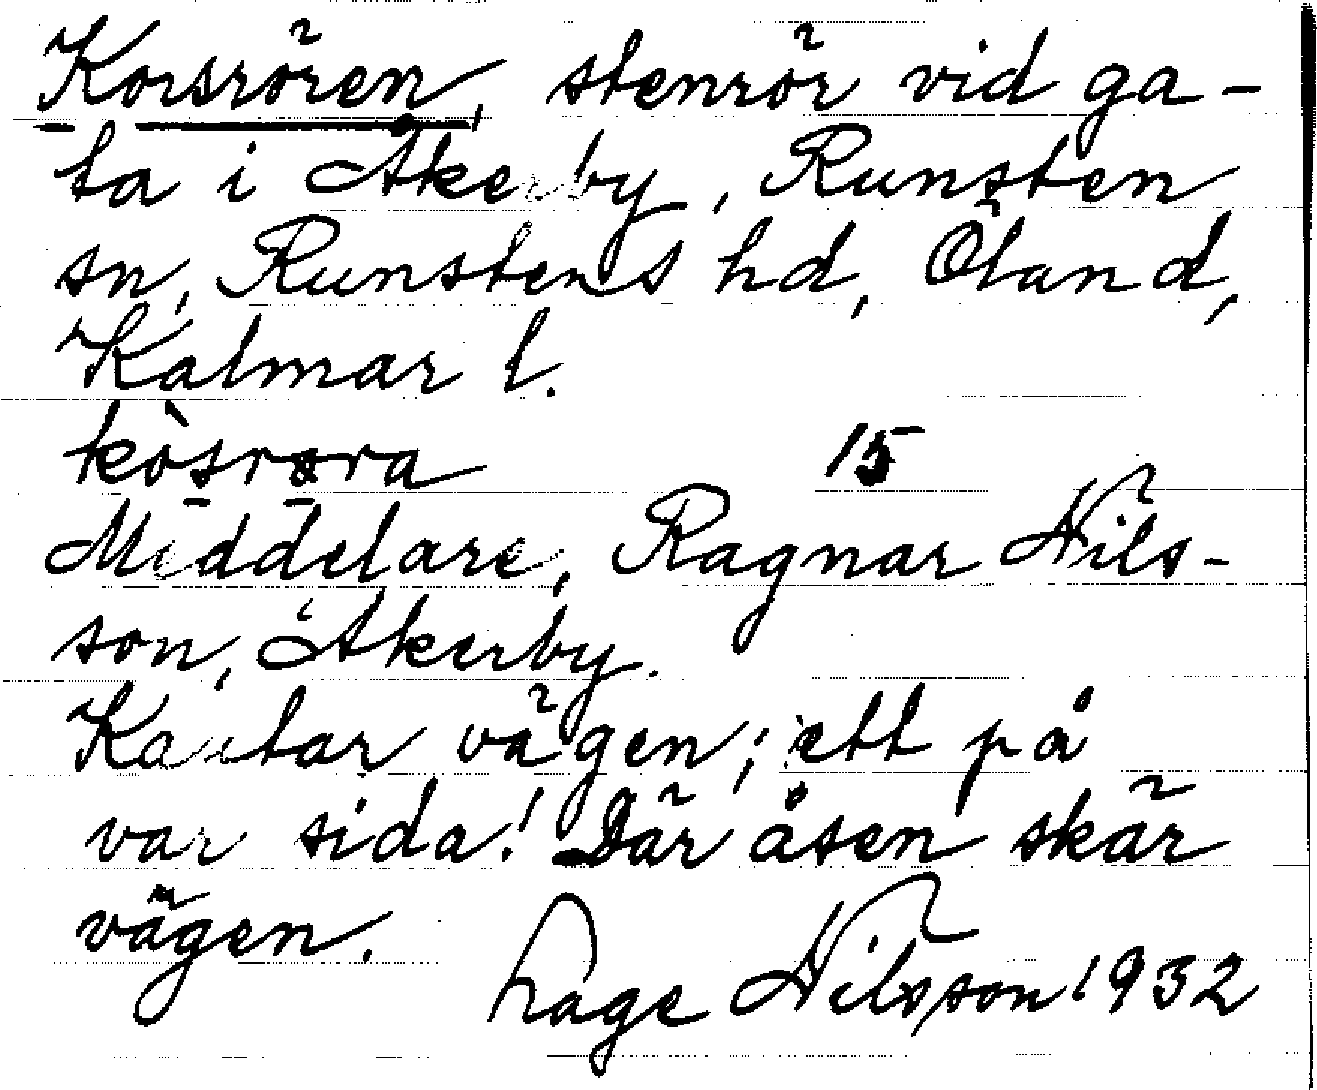 Korsrören, stenrör vid ga-
ta i Åkerby, Runsten
sn, Runstens hd, Öland,
Kalmar l.
kòsrøra 15
Meddelare, Ragnar Nils-
son, Åkerby.
Kantar vägen; ett på
var sida! Där åsen skär
vägen.
Hage Nilsson 1932